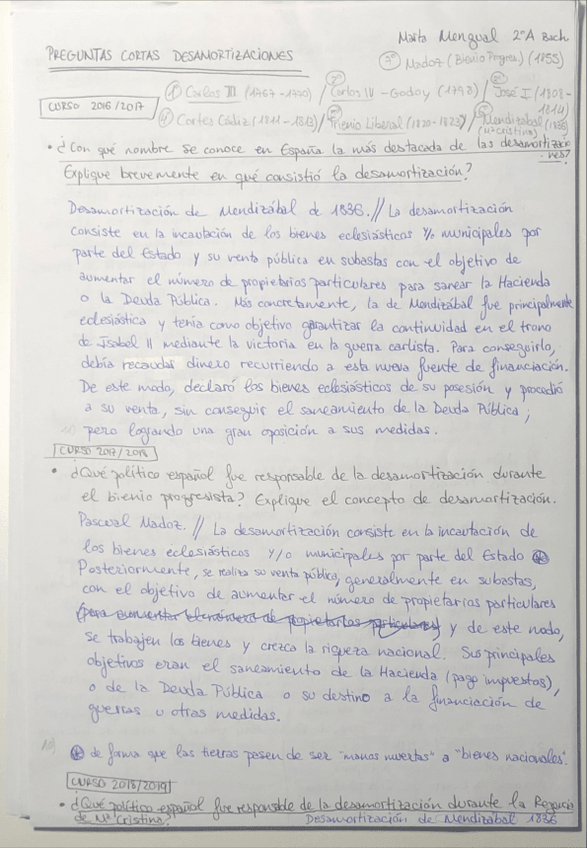 Marta Mengual 2ºA Bach
PREGUNTAS CORTAS DESAMORTIZACIONES
⑦ Madoz (Bienio Progres.) (1855)
① Carlos III (1767-1770) / ② Carlos IV - Godoy (1798) / ③ José I (1808-1814)
CURSO 2016/2017
④ Cortes Cádiz (1811-1813) / ⑤ Trienio Liberal (1820-1823) / ⑥ Mendizábal (1836) (Mª Cristina)
• ¿Con qué nombre se conoce en España la más destacada de las desamortizaciones?
Explique brevemente en qué consistió la desamortización?
Desamortización de Mendizábal de 1836. // La desamortización
consiste en la incautación de los bienes eclesiásticos y/o municipales por
parte del Estado y su venta pública en subastas con el objetivo de
aumentar el número de propietarios particulares para sanear la Hacienda
o la Deuda Pública. Más concretamente, la de Mendizábal fue principalmente
eclesiástica y tenía como objetivo garantizar la continuidad en el trono
de Isabel II mediante la victoria en la guerra carlista. Para conseguirlo,
debía recaudar dinero recurriendo a esta nueva fuente de financiación.
De este modo, declaró los bienes eclesiásticos de su posesión y procedió
a su venta, sin conseguir el saneamiento de la Deuda Pública;
pero logrando una gran oposición a sus medidas.
CURSO 2017/2018
• ¿Qué político español fue responsable de la desamortización durante
el bienio progresista? Explique el concepto de desamortización.
Pascual Madoz. // La desamortización consiste en la incautación de
los bienes eclesiásticos y/o municipales por parte del Estado ⊛
Posteriormente, se realiza su venta pública, generalmente en subastas,
con el objetivo de aumentar el número de propietarios particulares
(para aumentar el número de propietarios particulares) y de este modo,
se trabajen los bienes y crezca la riqueza nacional. Sus principales
objetivos eran el saneamiento de la Hacienda (pago impuestos),
o de la Deuda Pública o su destino a la financiación de
guerras u otras medidas.
⊛ de forma que las tierras pasen de ser "manos muertas" a "bienes nacionales".
CURSO 2018/2019
• ¿Qué político español fue responsable de la desamortización durante la Regencia
de Mª Cristina? Desamortización de Mendizábal 1836